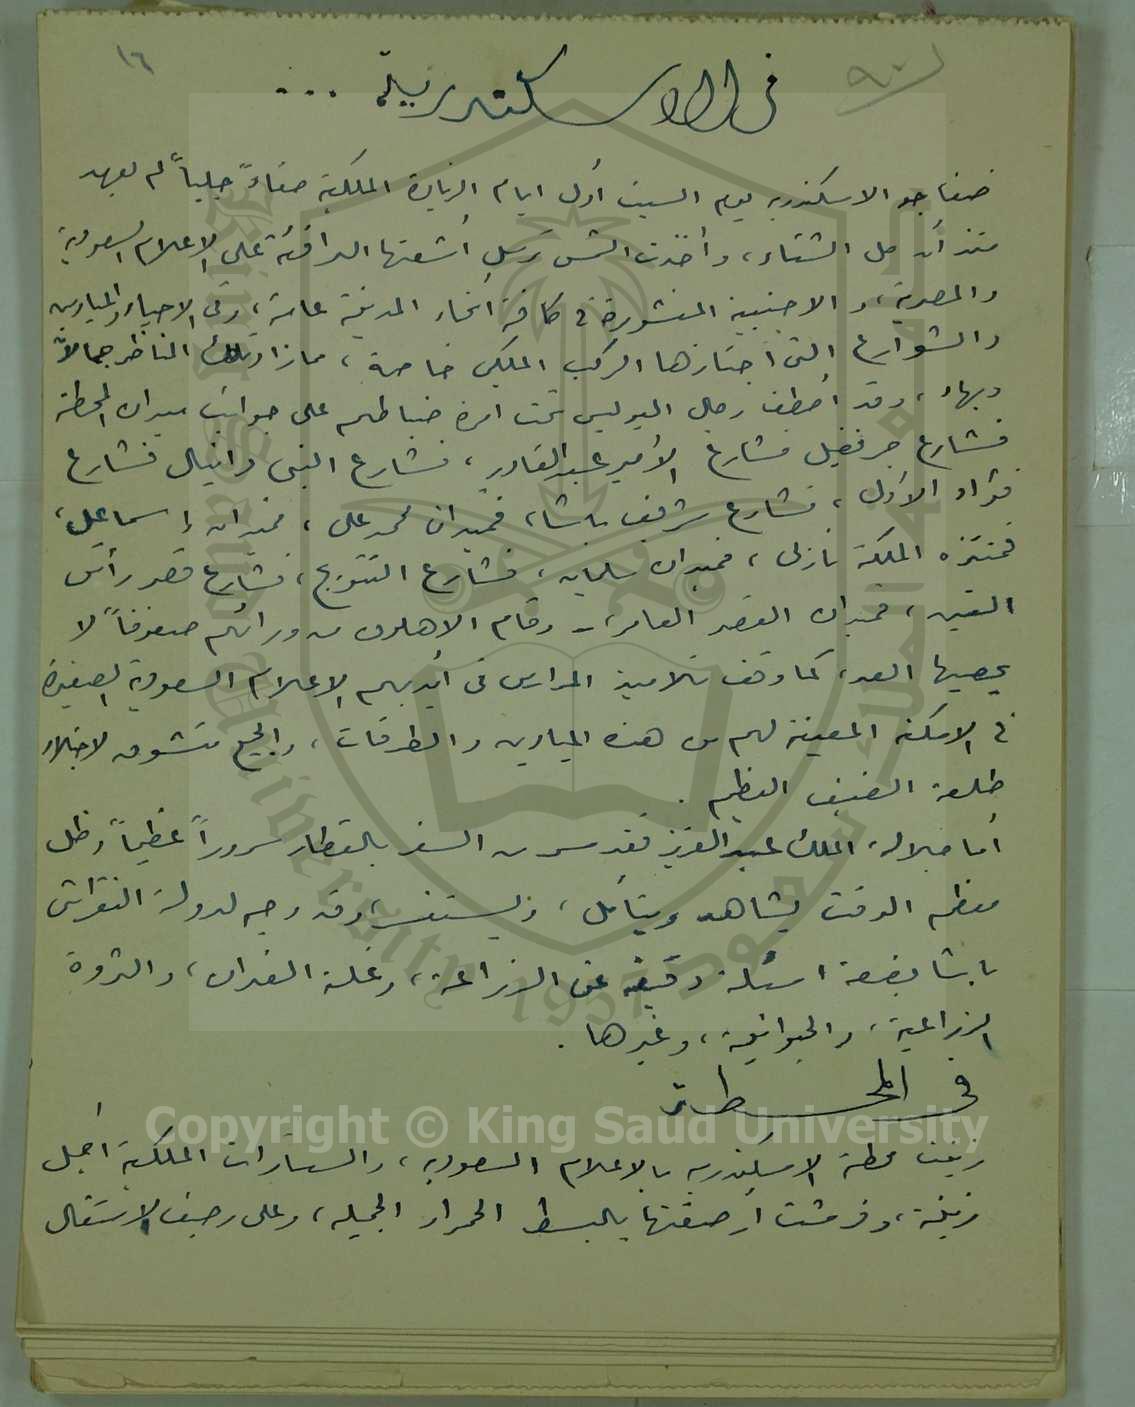 ١٦
في الاسكندرية ...
صفا جو الاسكندرية يوم السبت أول ايام الزيارة الملكية صفاءً جلياً لم يعهد
منذ أن حل الشتاء، وأخذت الشمس ترسل أشعتها الدافئة على الاعلام السعودية
والمصرية، والاجنبية المنشورة في كافة أنحاء المدينة عامة، وفي الاحياء والميادين
والشوارع التي اجتازها الركب الملكي خاصة، مما زاد تلك المناظر جمالاً
وبهاء، وقد أصطف رجال البوليس تحت امرة ضباطهم على جوانب ميدان المحطة
فشارع جرنفيل فشارع الأمير عبد القادر، فشارع النبي دانيال فشارع
فؤاد الأول، فشارع شريف باشا، فميدان محمد علي، فميدان إسماعيل،
فمنتزه الملكة نازلي، فميدان سليمان، فشارع التتويج، فشارع قصر رأس
التين، فميدان القصر العامر، – وقام الاهلون من ورائهم صفوفاً لا
يحصيها العد، كما وقف تلاميذ المدارس في أيديهم الاعلام السعودية الصغيرة
في الامكنة المعينة لهم من هذه الميادين والطرقات، والجميع متشوق لاجتلاء
طلعة الضيف العظيم .
أما جلالة الملك عبد العزيز فقد سر من السفر بالقطار سروراً عظيماً وظل
معظم الوقت يشاهد ويتأمل، ويستفسر، وقد وجه لدولة النقراشي
باشا بضعة اسئلة دقيقة عن الزراعة، وغلة الفدان، والثروة
الزراعية، والحيوانية، وغيرها .
في المحطة
زينت محطة الاسكندرية بالاعلام السعودية، والسيارات الملكية اجمل
زينة، وفرشت ارصفتها بالبسط الحمراء الجميلة، وعلى رصيف الاستقبال
Copyright © King Saud University
King Saud University 1957
جامعة الملك سعود